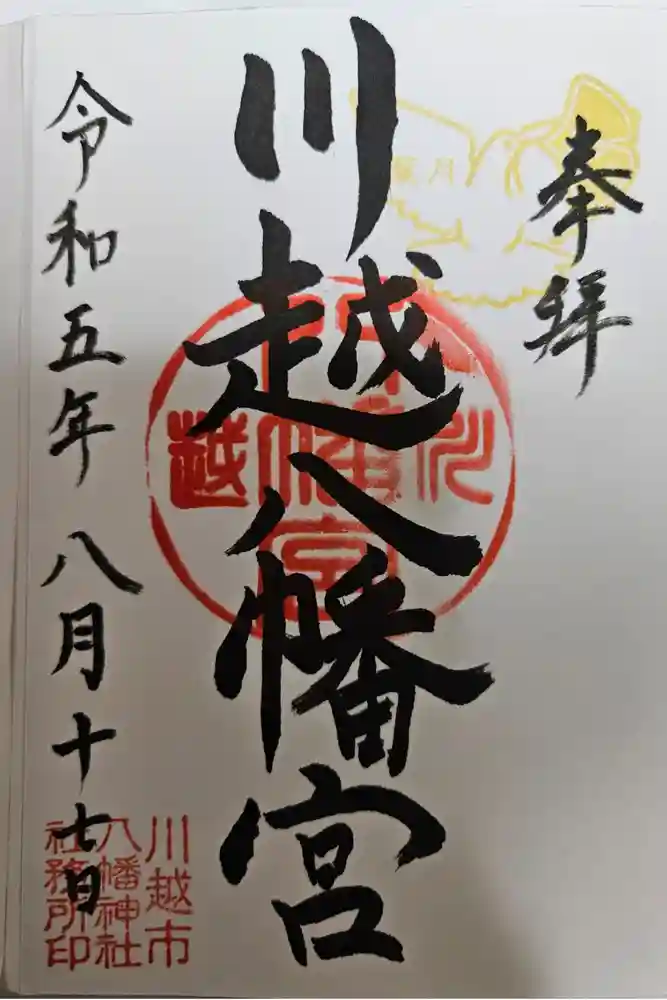 奉拝
葉月
川越八幡宮
川越
八幡宮
令和五年八月十七日
川越市
八幡神社
社務所印